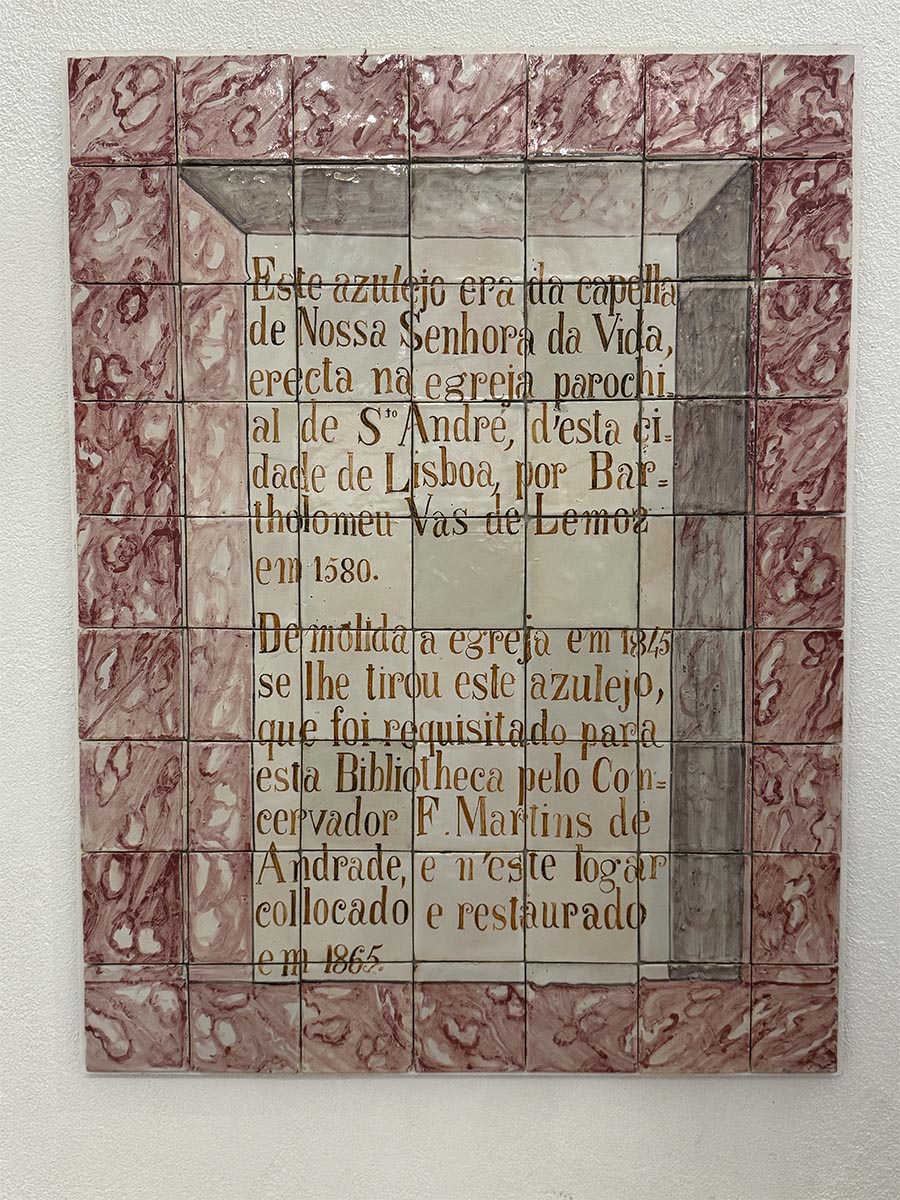 Este azulejo era da capella
de Nossa Senhora da Vida,
erecta na egreja parochi
al de Sto André, d'esta ci=
dade de Lisboa, por Bar=
tholomeu Vas de Lemos
em 1580.
Demolida a egreja em 1845
se lhe tirou este azulejo,
que foi requisitado para
esta Bibliotheca pelo Con=
cervador F. Martins de
Andrade, e n'este logar
collocado e restaurado
em 1865.